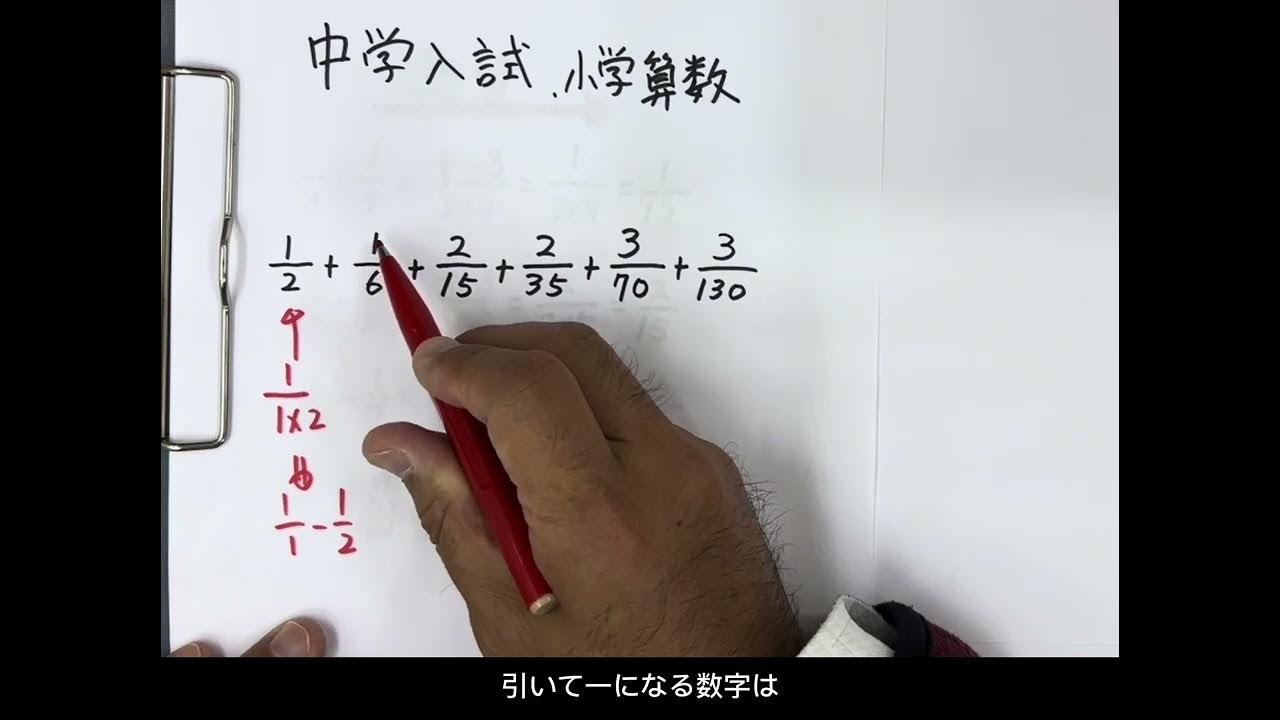 中学入試.小学算数
1/2 + 1/6 + 2/15 + 2/35 + 3/70 + 3/130
1/1×2
1/1 - 1/2
引いて一になる数字は